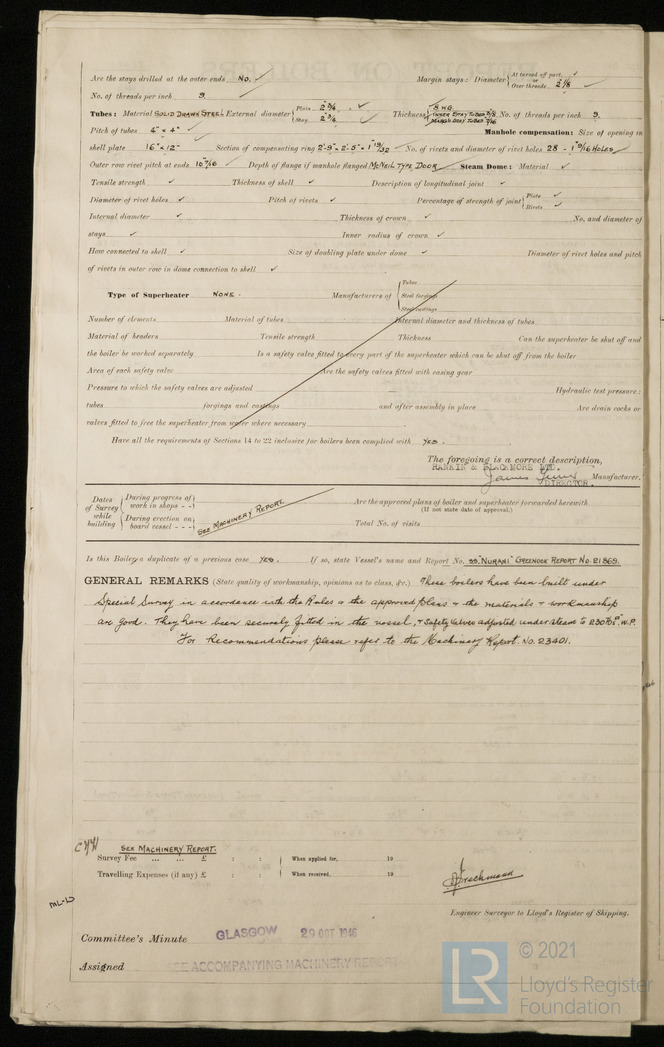 Are the stays drilled at the outer ends No. ✓ Margin stays: Diameter { At turned off part, ✓ or Over threads 2 1/8
No. of threads per inch 9.
Tubes: Material SOLID DRAWN STEEL External diameter { Plain 2 3/4 ✓ Stay 2 3/4 Thickness { 8 WG. No. of threads per inch 9.
Pitch of tubes 4" × 4" Manhole compensation: Size of opening in
shell plate 16" × 12" Section of compensating ring 2'-9" × 2'-5" × 1 19/32 No. of rivets and diameter of rivet holes 28 - 1 9/16 HOLES
Outer row rivet pitch at ends 10 7/16 Depth of flange if manhole flanged McNEIL TYPE DOOR Steam Dome: Material ✓
Tensile strength ✓ Thickness of shell ✓ Description of longitudinal joint ✓
Diameter of rivet holes ✓ Pitch of rivets ✓ Percentage of strength of joint { Plate ✓ Rivets ✓
Internal diameter ✓ Thickness of crown ✓ No. and diameter of
stays ✓ Inner radius of crown ✓
How connected to shell ✓ Size of doubling plate under dome ✓ Diameter of rivet holes and pitch
of rivets in outer row in dome connection to shell ✓
Type of Superheater NONE. Manufacturers of { Tubes Steel forgings Steel castings
Number of elements Material of tubes Internal diameter and thickness of tubes
Material of headers Tensile strength Thickness Can the superheater be shut off and
the boiler be worked separately Is a safety valve fitted to every part of the superheater which can be shut off from the boiler
Area of each safety valve Are the safety valves fitted with easing gear
Pressure to which the safety valves are adjusted Hydraulic test pressure:
tubes forgings and castings and after assembly in place Are drain cocks or
valves fitted to free the superheater from water where necessary
Have all the requirements of Sections 14 to 22 inclusive for boilers been complied with YES.
The foregoing is a correct description,
RANKIN & BLACKMORE LTD.
DIRECTOR. Manufacturer.
Dates of Survey while building { During progress of work in shops - - } Are the approved plans of boiler and superheater forwarded herewith
(If not state date of approval.)
{ During erection on board vessel - - - } SEE MACHINERY REPORT Total No. of visits
Is this Boiler a duplicate of a previous case YES. If so, state Vessel's name and Report No. SS "NURANI" GREENOCK REPORT No. 21869.
GENERAL REMARKS (State quality of workmanship, opinions as to class, &c.) These boilers have been built under
Special Survey in accordance with the Rules & the approved plans & the materials & workmanship
are good. They have been securely fitted in the vessel, & Safety Valves adjusted under steam to 230 lbs/□", W.P.
For Recommendations please refer to the Machinery Report. No. 23401.
SEE MACHINERY REPORT.
Survey Fee ... ... £ : : When applied for, 19
Travelling Expenses (if any) £ : : When received, 19
Engineer Surveyor to Lloyd's Register of Shipping.
Committee's Minute GLASGOW 29 OCT 1946
Assigned SEE ACCOMPANYING MACHINERY REPORT
LR © 2021
Lloyd's Register
Foundation